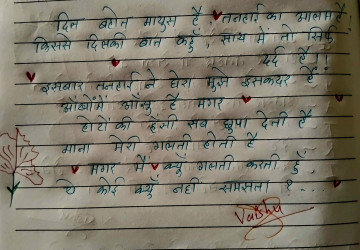 दिल बहोत मायुस है, तनहाई का आलम है!
किससे दिलकी बात कहूँ, साथ में तो सिर्फ
दर्द है!!
इसबार तनहाई ने घेरा मुझे इसकदर है
आँखोंमें आँसू है मगर
होटों की हँसी सब छुपा देती है
माना मेरी गलती होती है
मगर मैं क्युं गलती करती हुं
ये कोई क्युं नहीं समझता है...
Vaishu